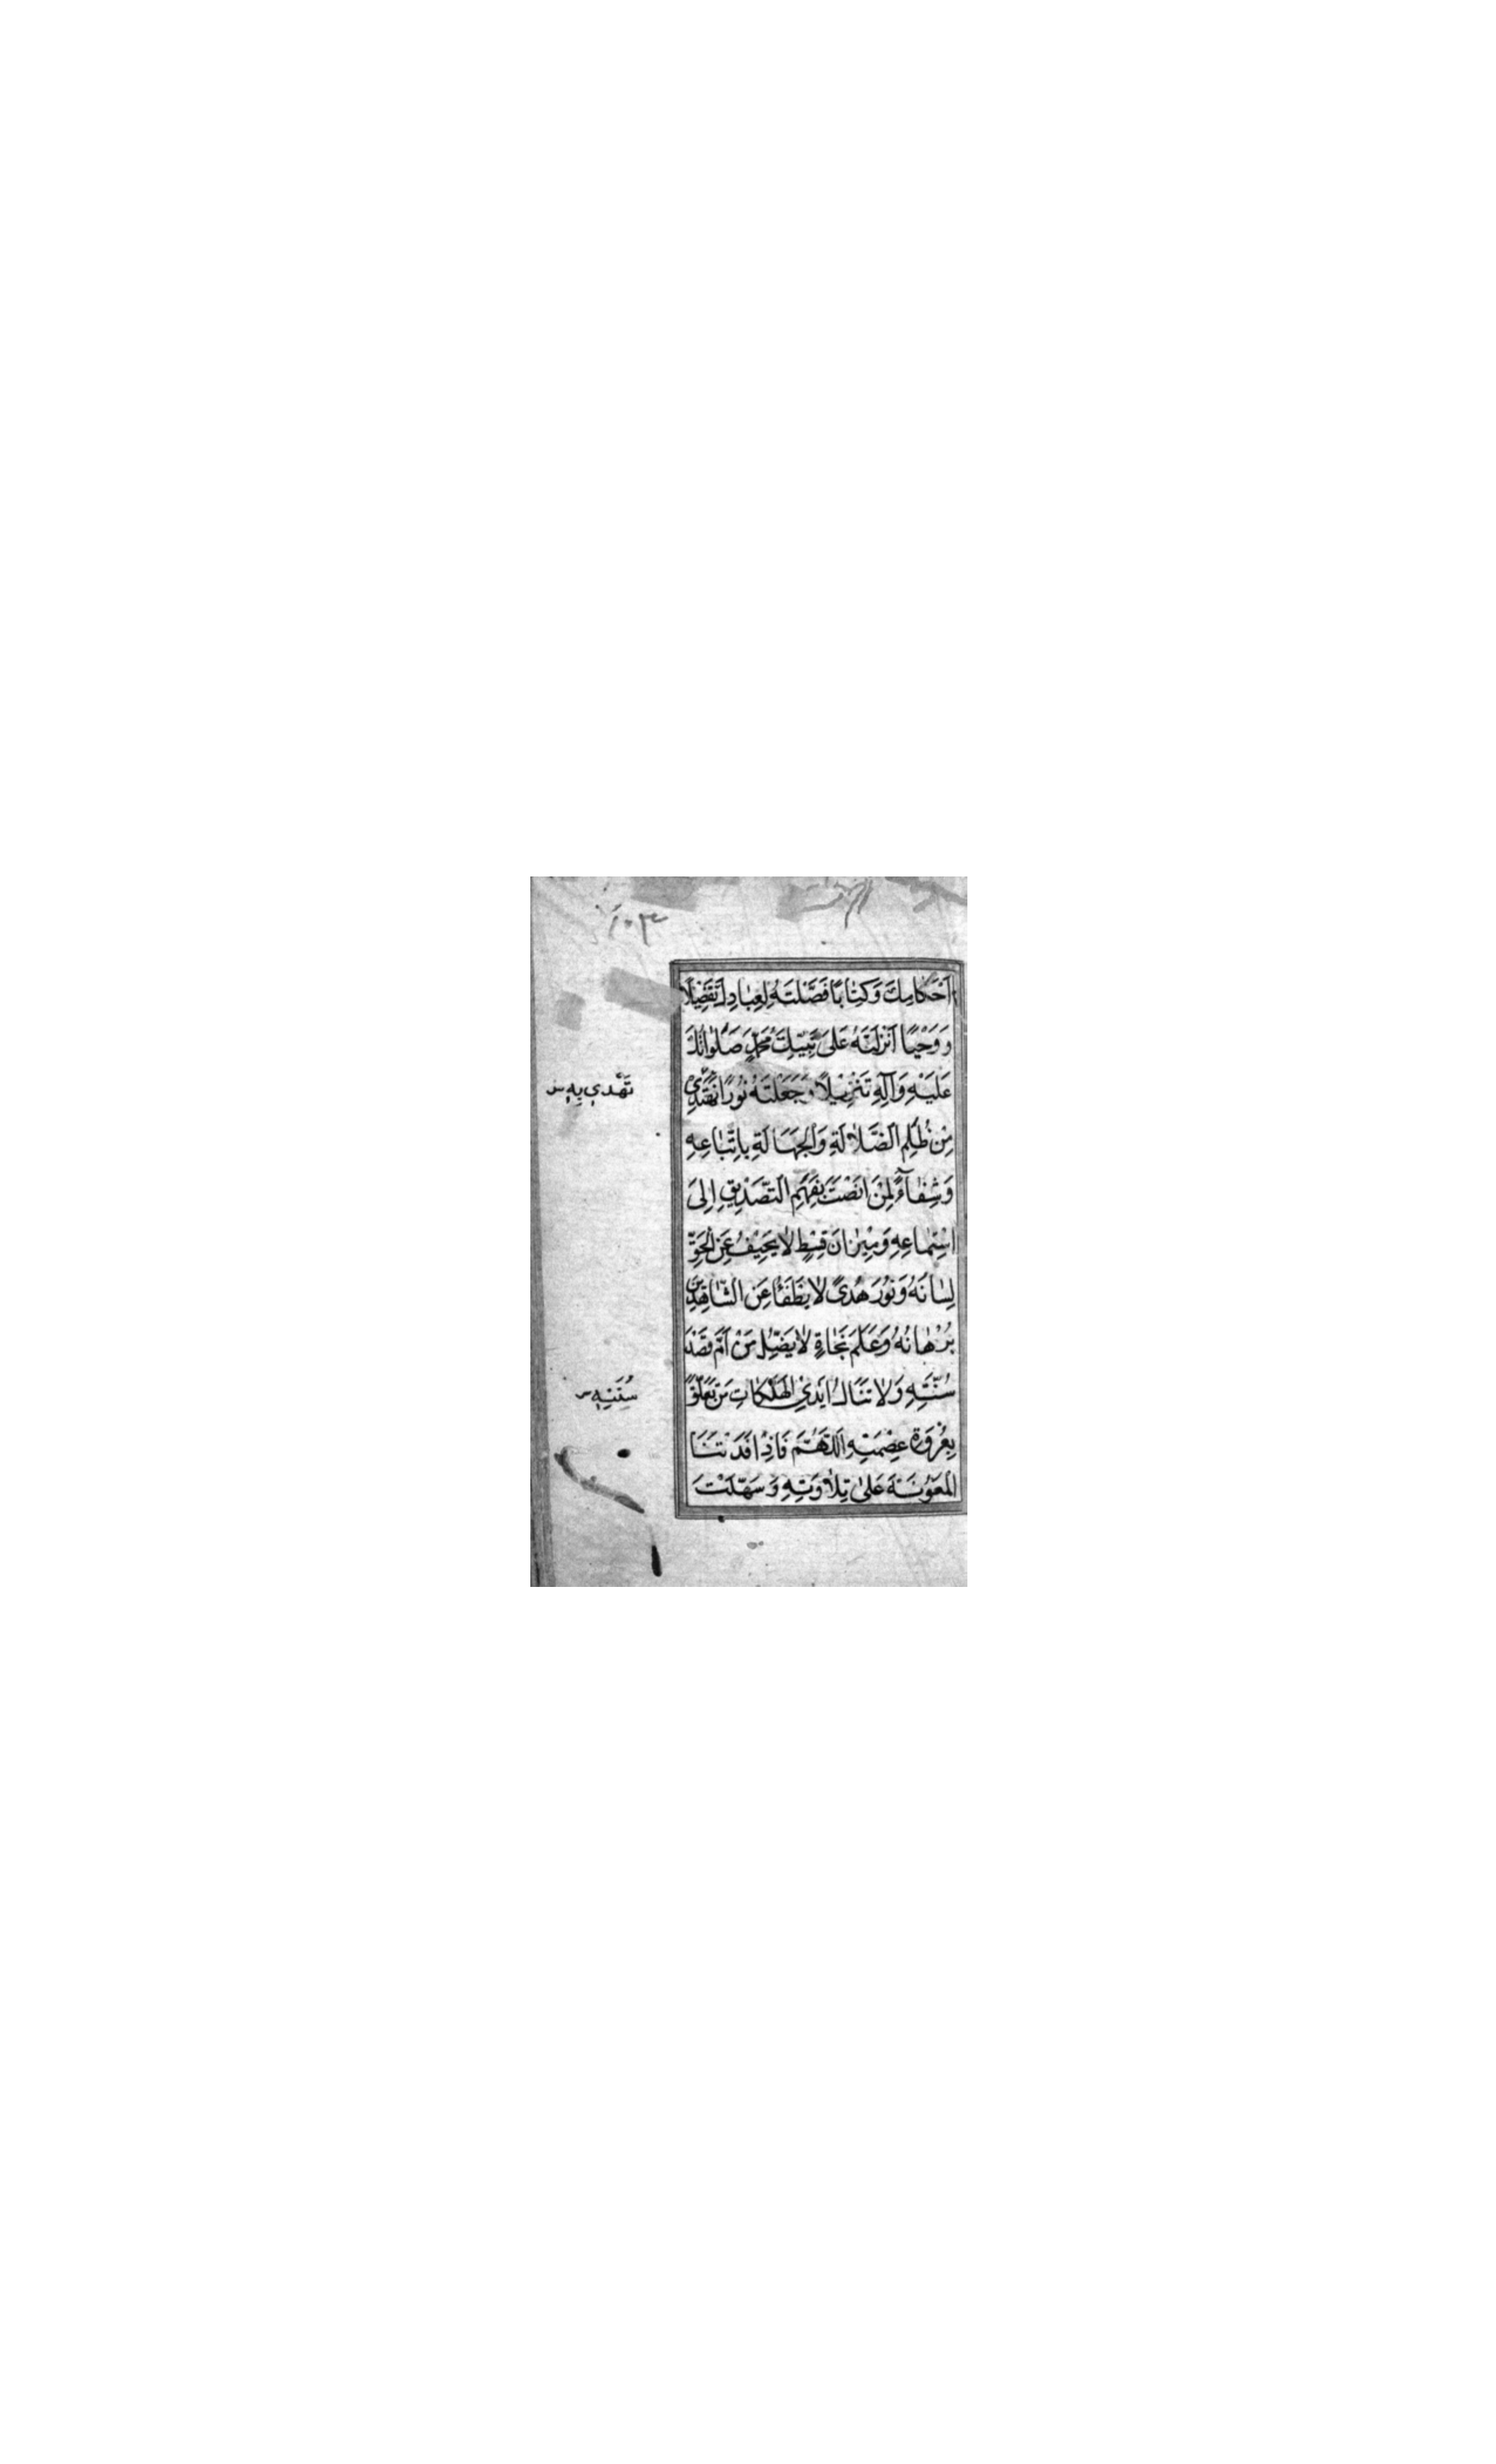 اَحْكَامِكَ وَكِتَابًا فَصَّلْتَهُ لِعِبَادِكَ تَفْصِيلًا
وَوَحْيًا اَنْزَلْتَهُ عَلَى نَبِيِّكَ مُحَمَّدٍ صَلَوَاتُكَ
عَلَيْهِ وَآلِهِ تَنْزِيلًا وَجَعَلْتَهُ نُورًا نَهْتَدِي
تَهْدِي بِهِ
مِنْ ظُلَمِ الضَّلَالَةِ وَالْجَهَالَةِ بِاتِّبَاعِهِ
وَشِفَآءً لِمَنْ اَنْصَتَ بِفَهْمِ التَّصْدِيقِ اِلَى
اسْتِمَاعِهِ وَمِيزَانَ قِسْطٍ لَا يَحِيفُ عَنِ الْحَقِّ
لِسَانُهُ وَنُورَ هُدًى لَا يُطْفَأُ عَنِ الشَّاهِدِينَ
بُرْهَانُهُ وَعَلَمَ نَجَاةٍ لَا يَضِلُّ مَنْ اَمَّ قَصْدَ
سُنَّتِهِ وَلَا تَنَالُ اَيْدِي الْهَلَكَاتِ مَنْ تَعَلَّقَ
سُنَنِهِ
بِعُرْوَةِ عِصْمَتِهِ اَللّٰهُمَّ فَاِذْ اَفَدْتَنَا
الْمَعُونَةَ عَلَى تِلَاوَتِهِ وَسَهَّلْتَ